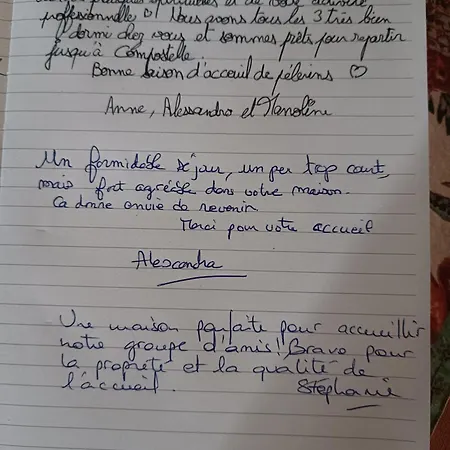 pratiques spirituelles et de votre activité
professionnelle ♡! Nous avons tous les 3 très bien
dormi chez vous et sommes prêts pour repartir
jusqu'à Compostelle
Bonne saison d'acceuil de pélerins ♡
Anne, Alessandro et Manoline
Un formidable séjour, un peu trop court,
mais fort agréable dans votre maison.
Ca donne envie de revenir
Merci pour votre accueil
Alexandra
Une maison parfaite pour accueillir
notre groupe d'amis! Bravo pour
la propreté et la qualité de
l'accueil. Stéphanie